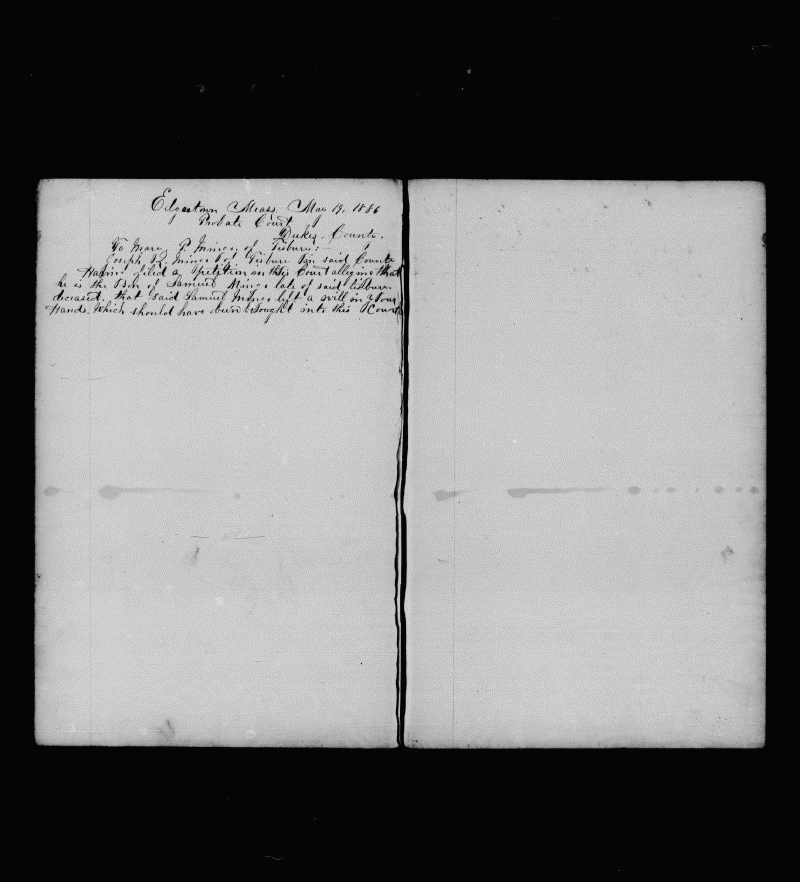 Edgartown Mass, May 19, 1886
Probate Court
Dukes. County.
To Mary P. Mingo, of Tisbury:—
Joseph Q. Mingo of Tisbury in said County
Having filed a petition in this Court alleging that
he is the Son of Samuel Mingo late of said tisbury
deceased. that said Samuel Mingo left a will in your
Hands. Which should have been brought into this Court